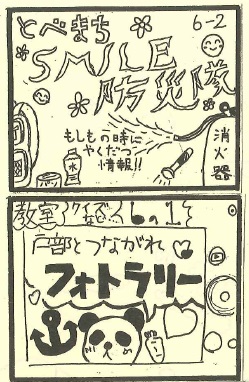 とべまち
6-2
SMILE
防災隊
もしもの時に
やくだつ
情報!!
消火器
水
教室クイズなど… 6の1
戸部とつながれ
フォトラリー